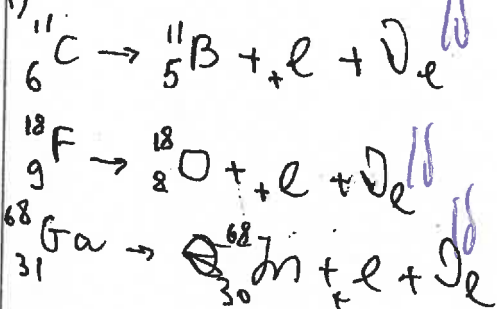 1)
¹¹₆C → ¹¹₅B + ₊e + ν_e 1б
¹⁸₉F → ¹⁸₈O + ₊e + ν_e 1б
⁶⁸₃₁Ga → ⁶⁸₃₀Zn + ₊e + ν_e 1б